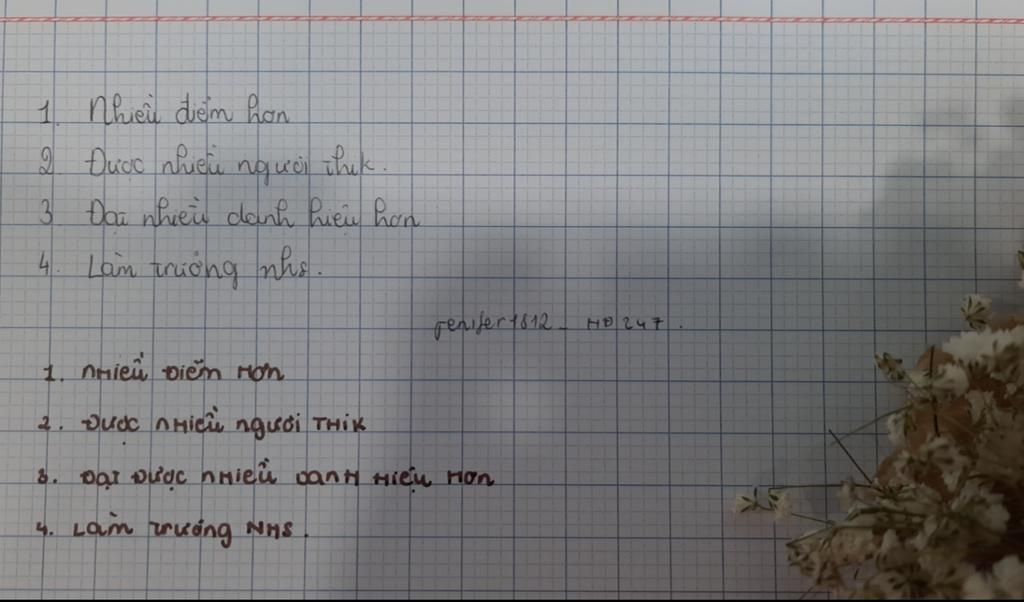 1. Nhiều điểm hơn
2 Được nhiều người thik.
3 Đạt nhiều danh hiệu hơn
4. Làm trưởng nhs.
jenifer1812_ HD247.
1. NHIỀU ĐIỂM HƠN
2. ĐƯỢC NHIỀU NGƯỜI THIK
3. ĐẠT ĐƯỢC NHIỀU DANH HIỆU HƠN
4. LÀM TRƯỞNG NHS.